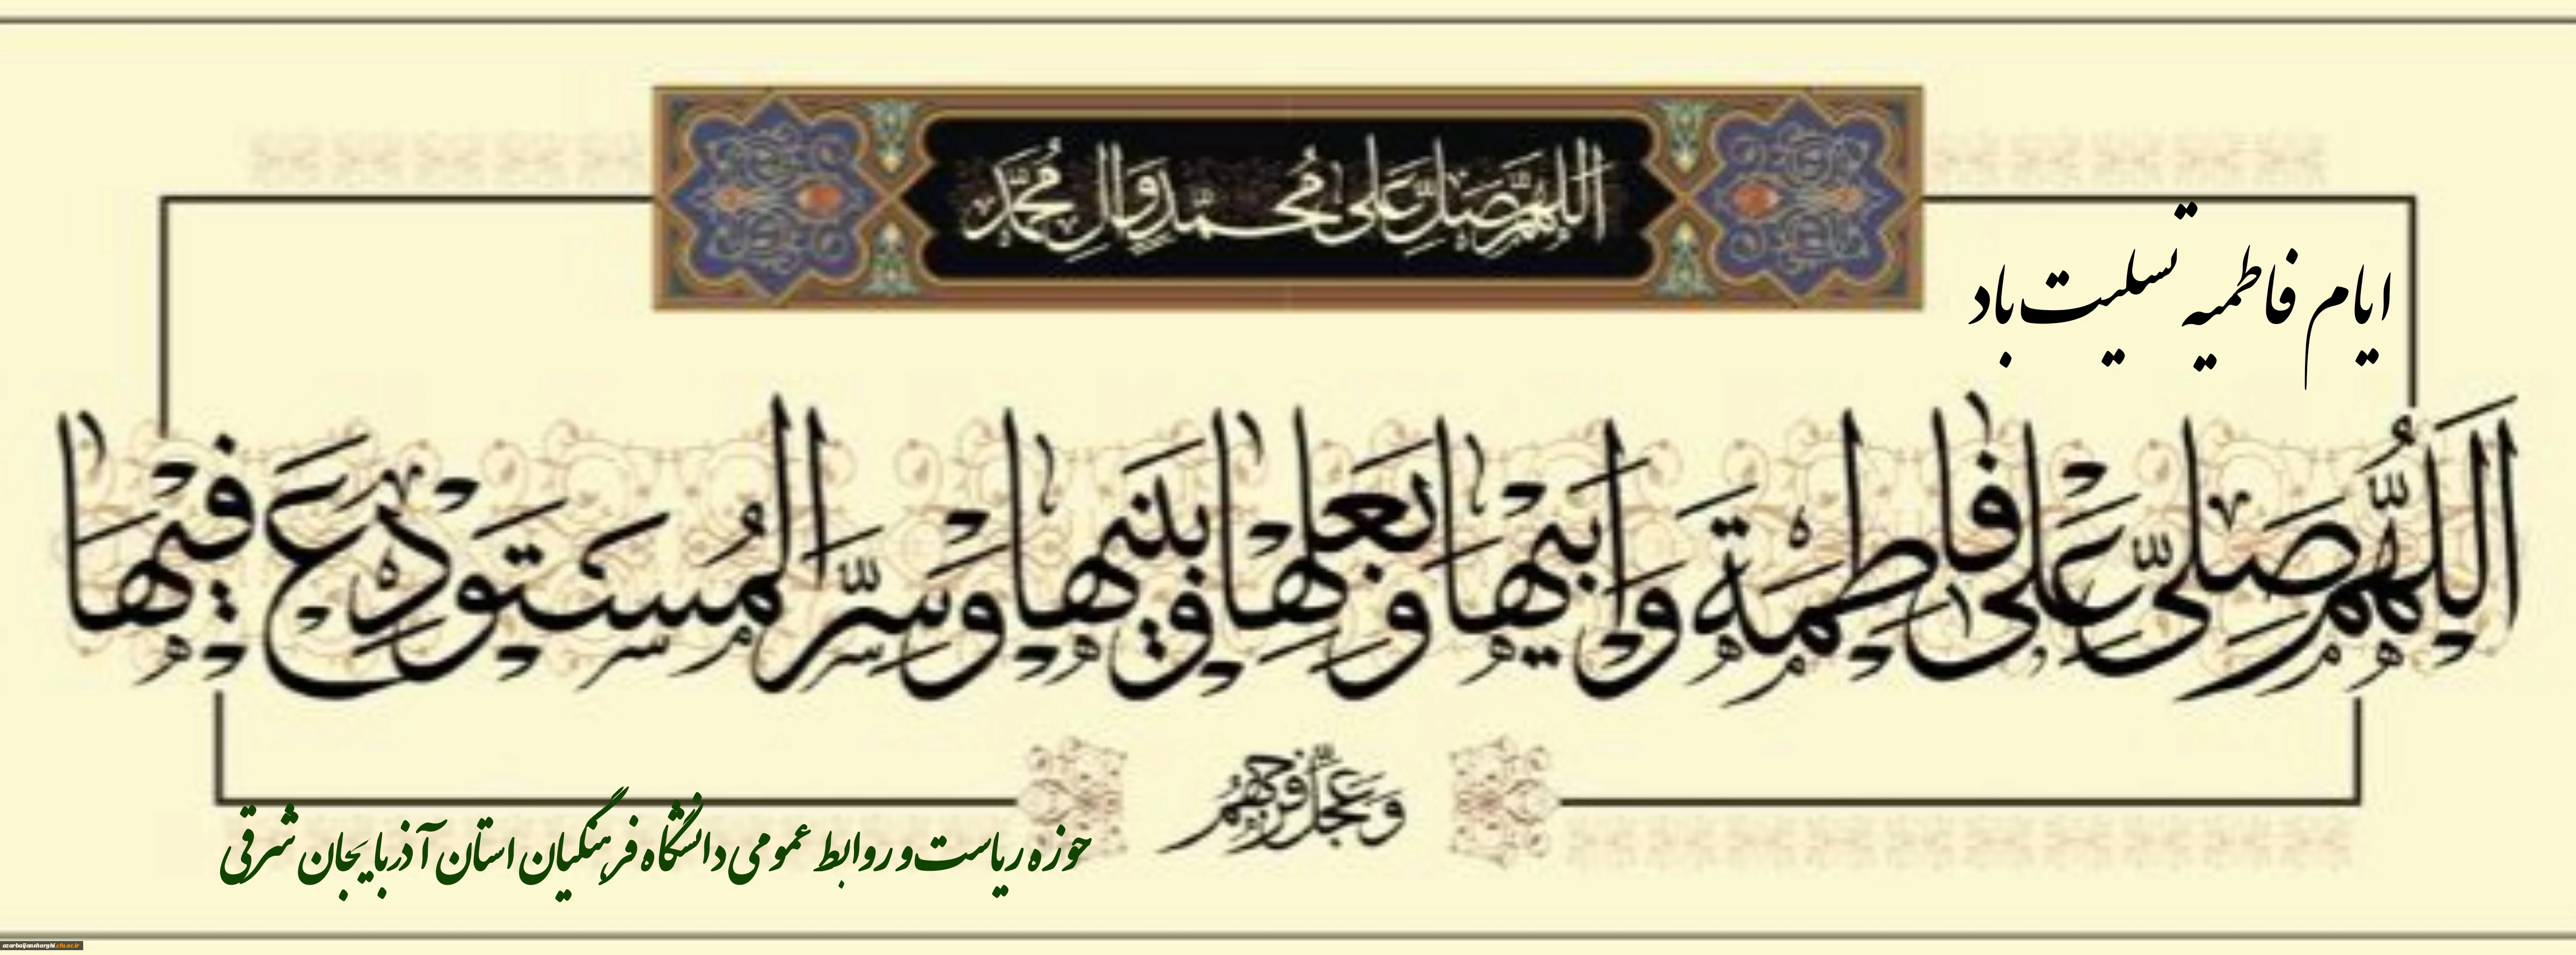 اللهم صل علی محمد وآل محمد
ایام فاطمیه تسلیت باد
اَللّهُمَّ صَلِّی عَلی فاطِمَة وَاَبیها وَبَعْلِها وَبَنیها وَسِرَّ المُسْتَوْدِعِ فیها
وَعَجِّل فَرَجَهُم
حوزه ریاست و روابط عمومی دانشگاه فرهنگیان استان آذربایجان شرقی
azarbaijansharghi.cfu.ac.ir